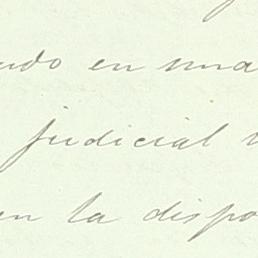 en una
judicial
en la dispo